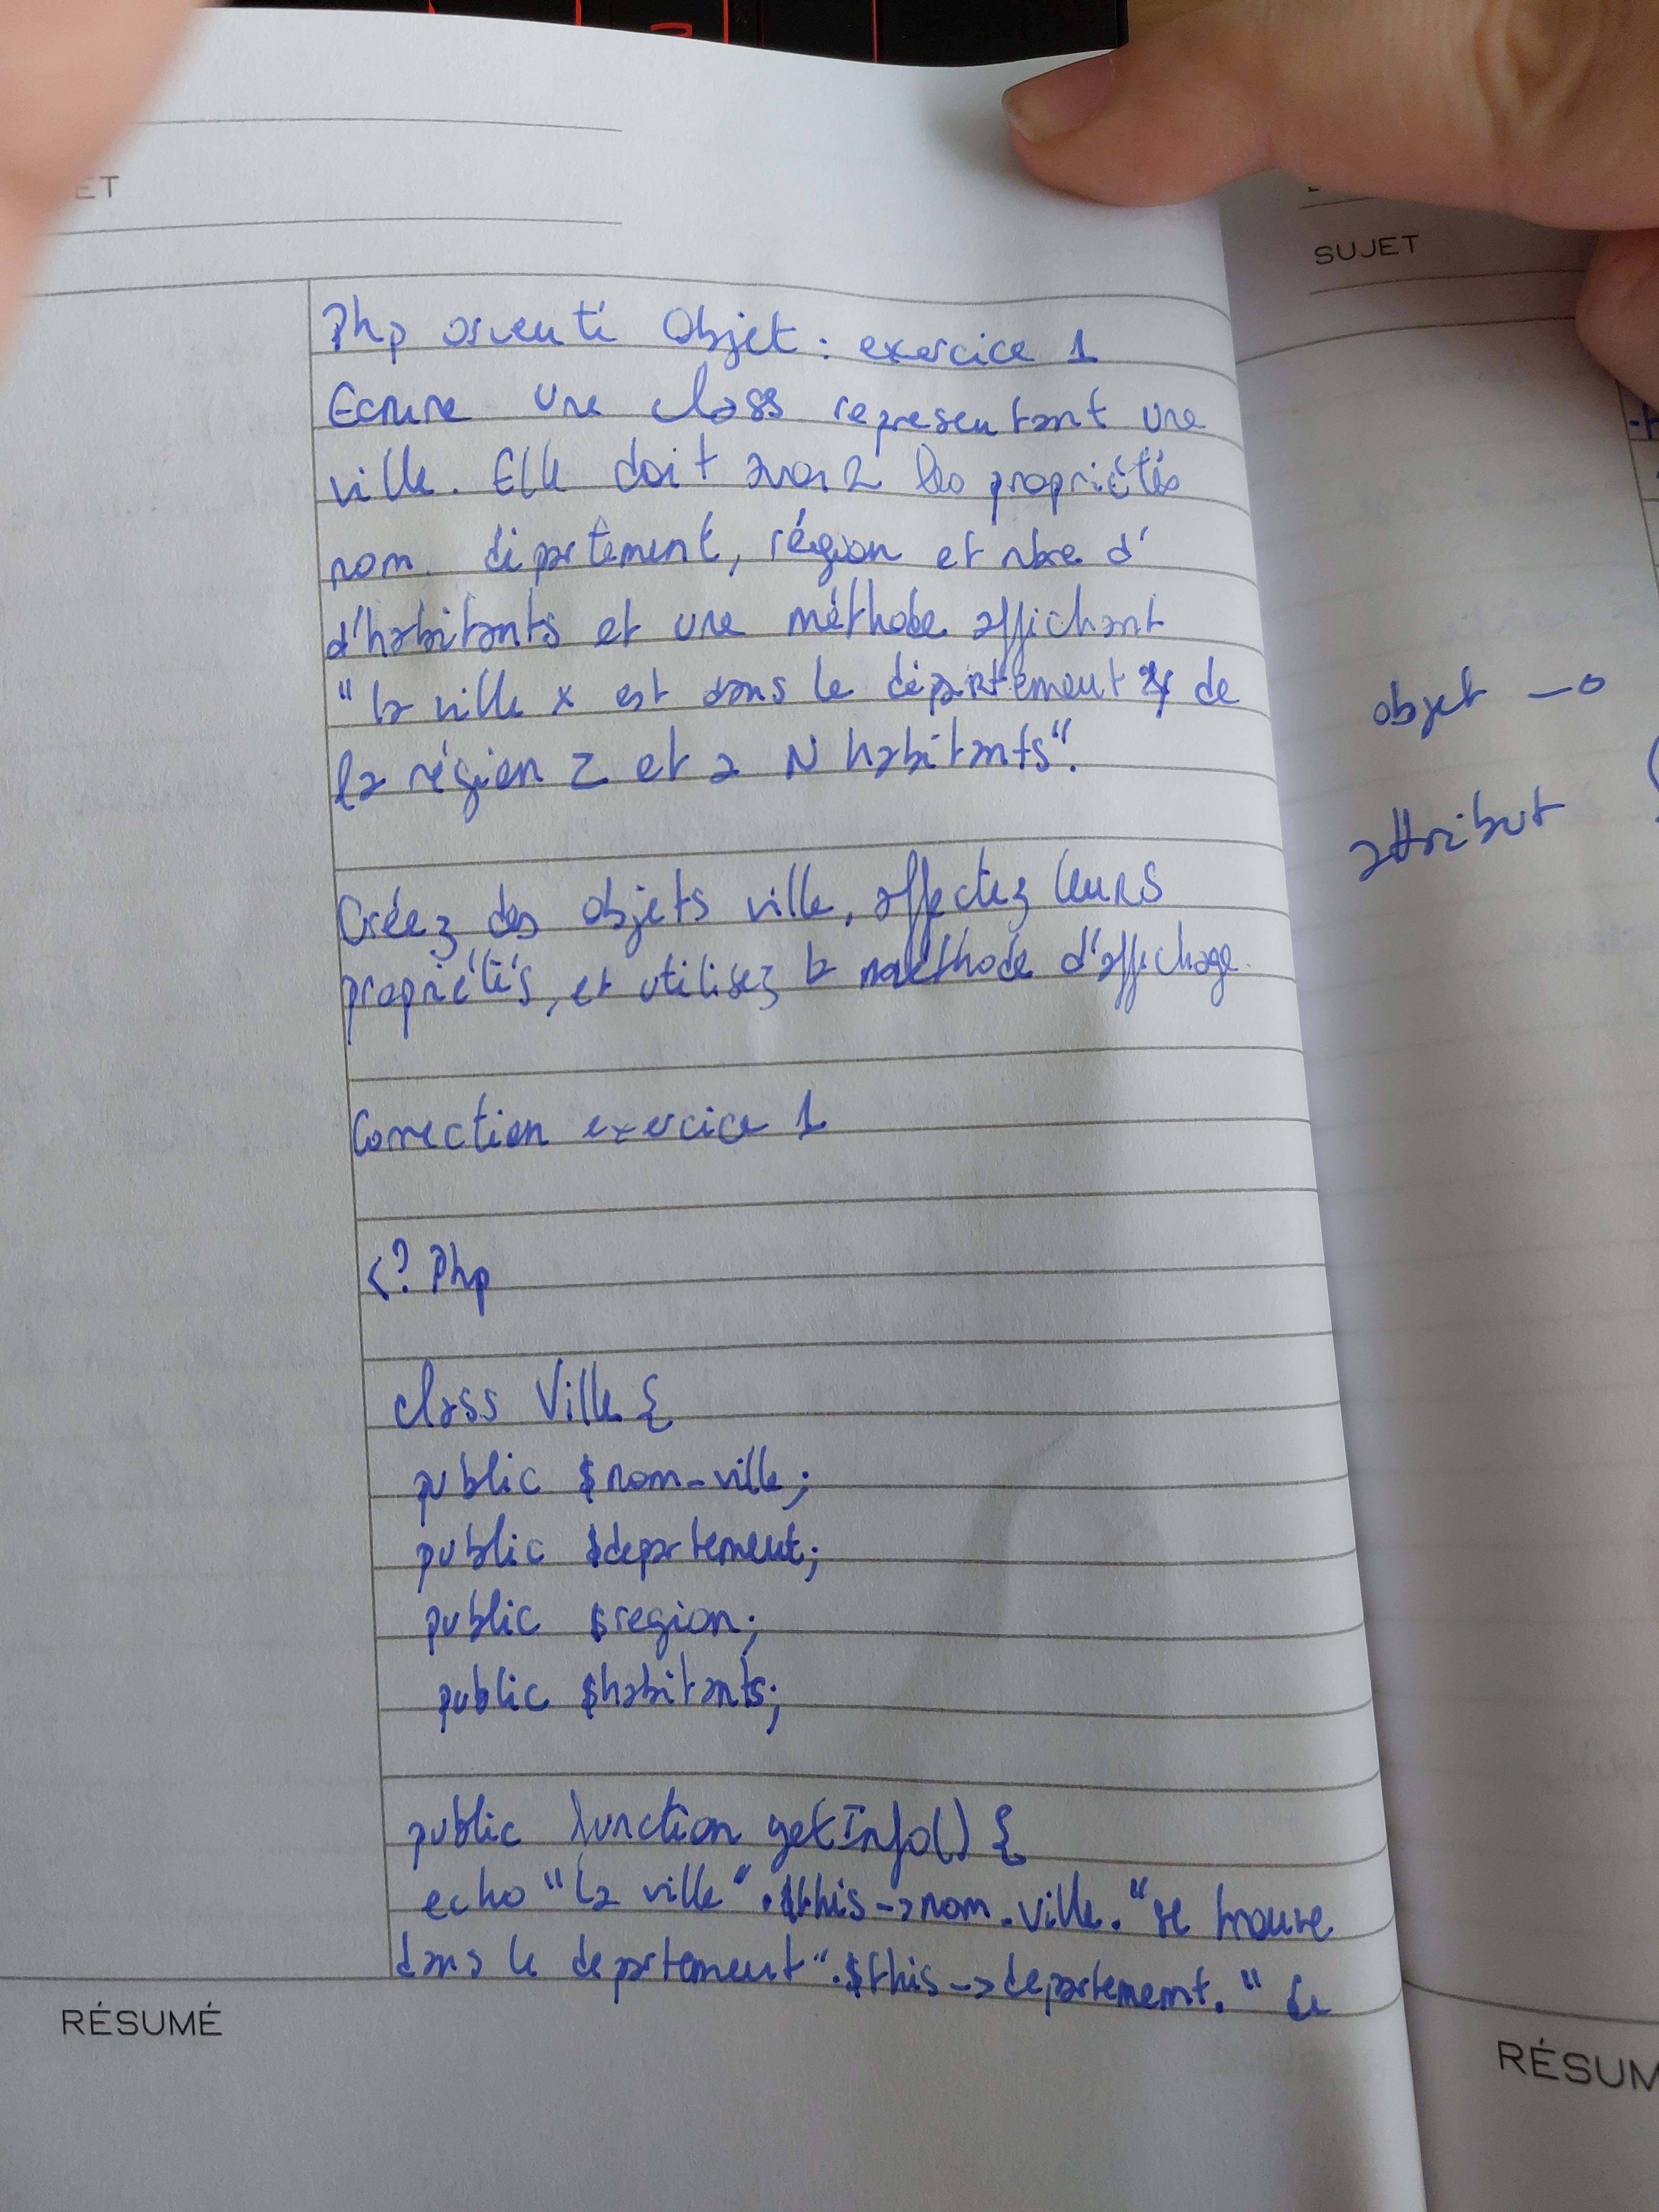 ET
Php orienté Objet : exercice 1
Ecrire une class representant une
ville. Elle doit avoir les propriétés
nom. département, région et nbre d'
d'habitants et une méthode affichant
"la ville x est dans le département y de
la région Z et a N habitants".
Créez des objets ville, affectez leurs
propriétés, et utilisez la méthode d'affichage.
Correction exercice 1
<? Php
class Ville {
public $nom_ville;
public $departement;
public $region;
public $habitants;
public function getInfo() {
echo "la ville".$this->nom_ville."se trouve
dans le departement".$this->departement." de
RÉSUMÉ
SUJET
objet —o
attribut
RÉSUM